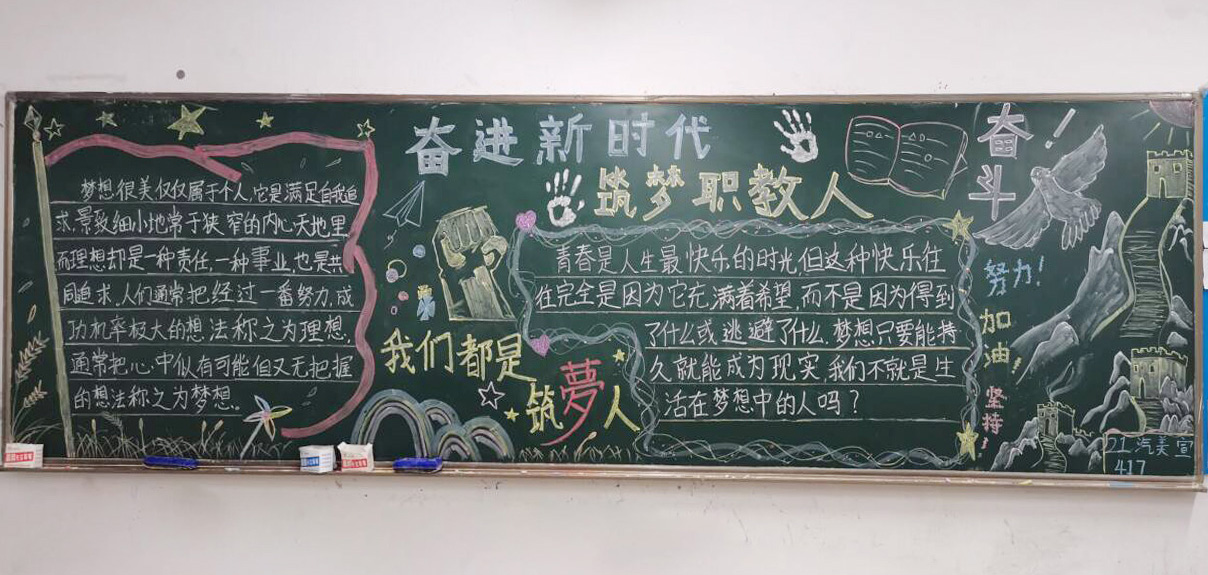 奋进新时代
筑梦职教人
梦想很美仅仅属于个人,它是满足自我追
求,景致细小地常于狭窄的内心天地里
而理想却是一种责任,一种事业,也是共
同追求,人们通常把经过一番努力,成
功机率极大的想法称之为理想,
通常把心中似有可能但又无把握
的想法称之为梦想。
我们都是
筑夢人
青春是人生最快乐的时光,但这种快乐往
往完全是因为它充满着希望,而不是因为得到
了什么或逃避了什么.梦想只要能持
久就能成为现实,我们不就是生
活在梦想中的人吗？
奋斗!
努力!
加油!
坚持!
21.汽美宣
417